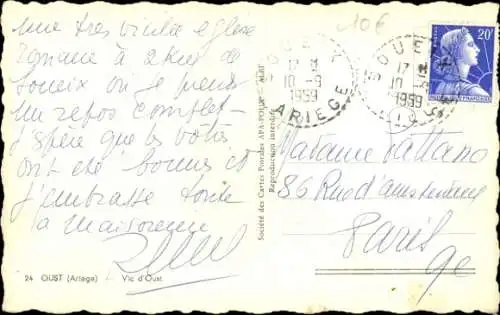 une très vieille église
romane à 2 Kms de
Soueix où je prends
un repos complet -
J'espère que les votres
ont été bonnes et
j'embrasse toute
la maisonnée
24 OUST (Ariège) Vic d'Oust
Société des Cartes Postales APA-POUX - ALBI
Reproduction interdite
10€
SOUEIX
17 H
10-9
1959
ARIEGE
SOUEIX
17 H
10-9
1959
20F
Madame
86 Rue d'amsterdam
Paris
9e